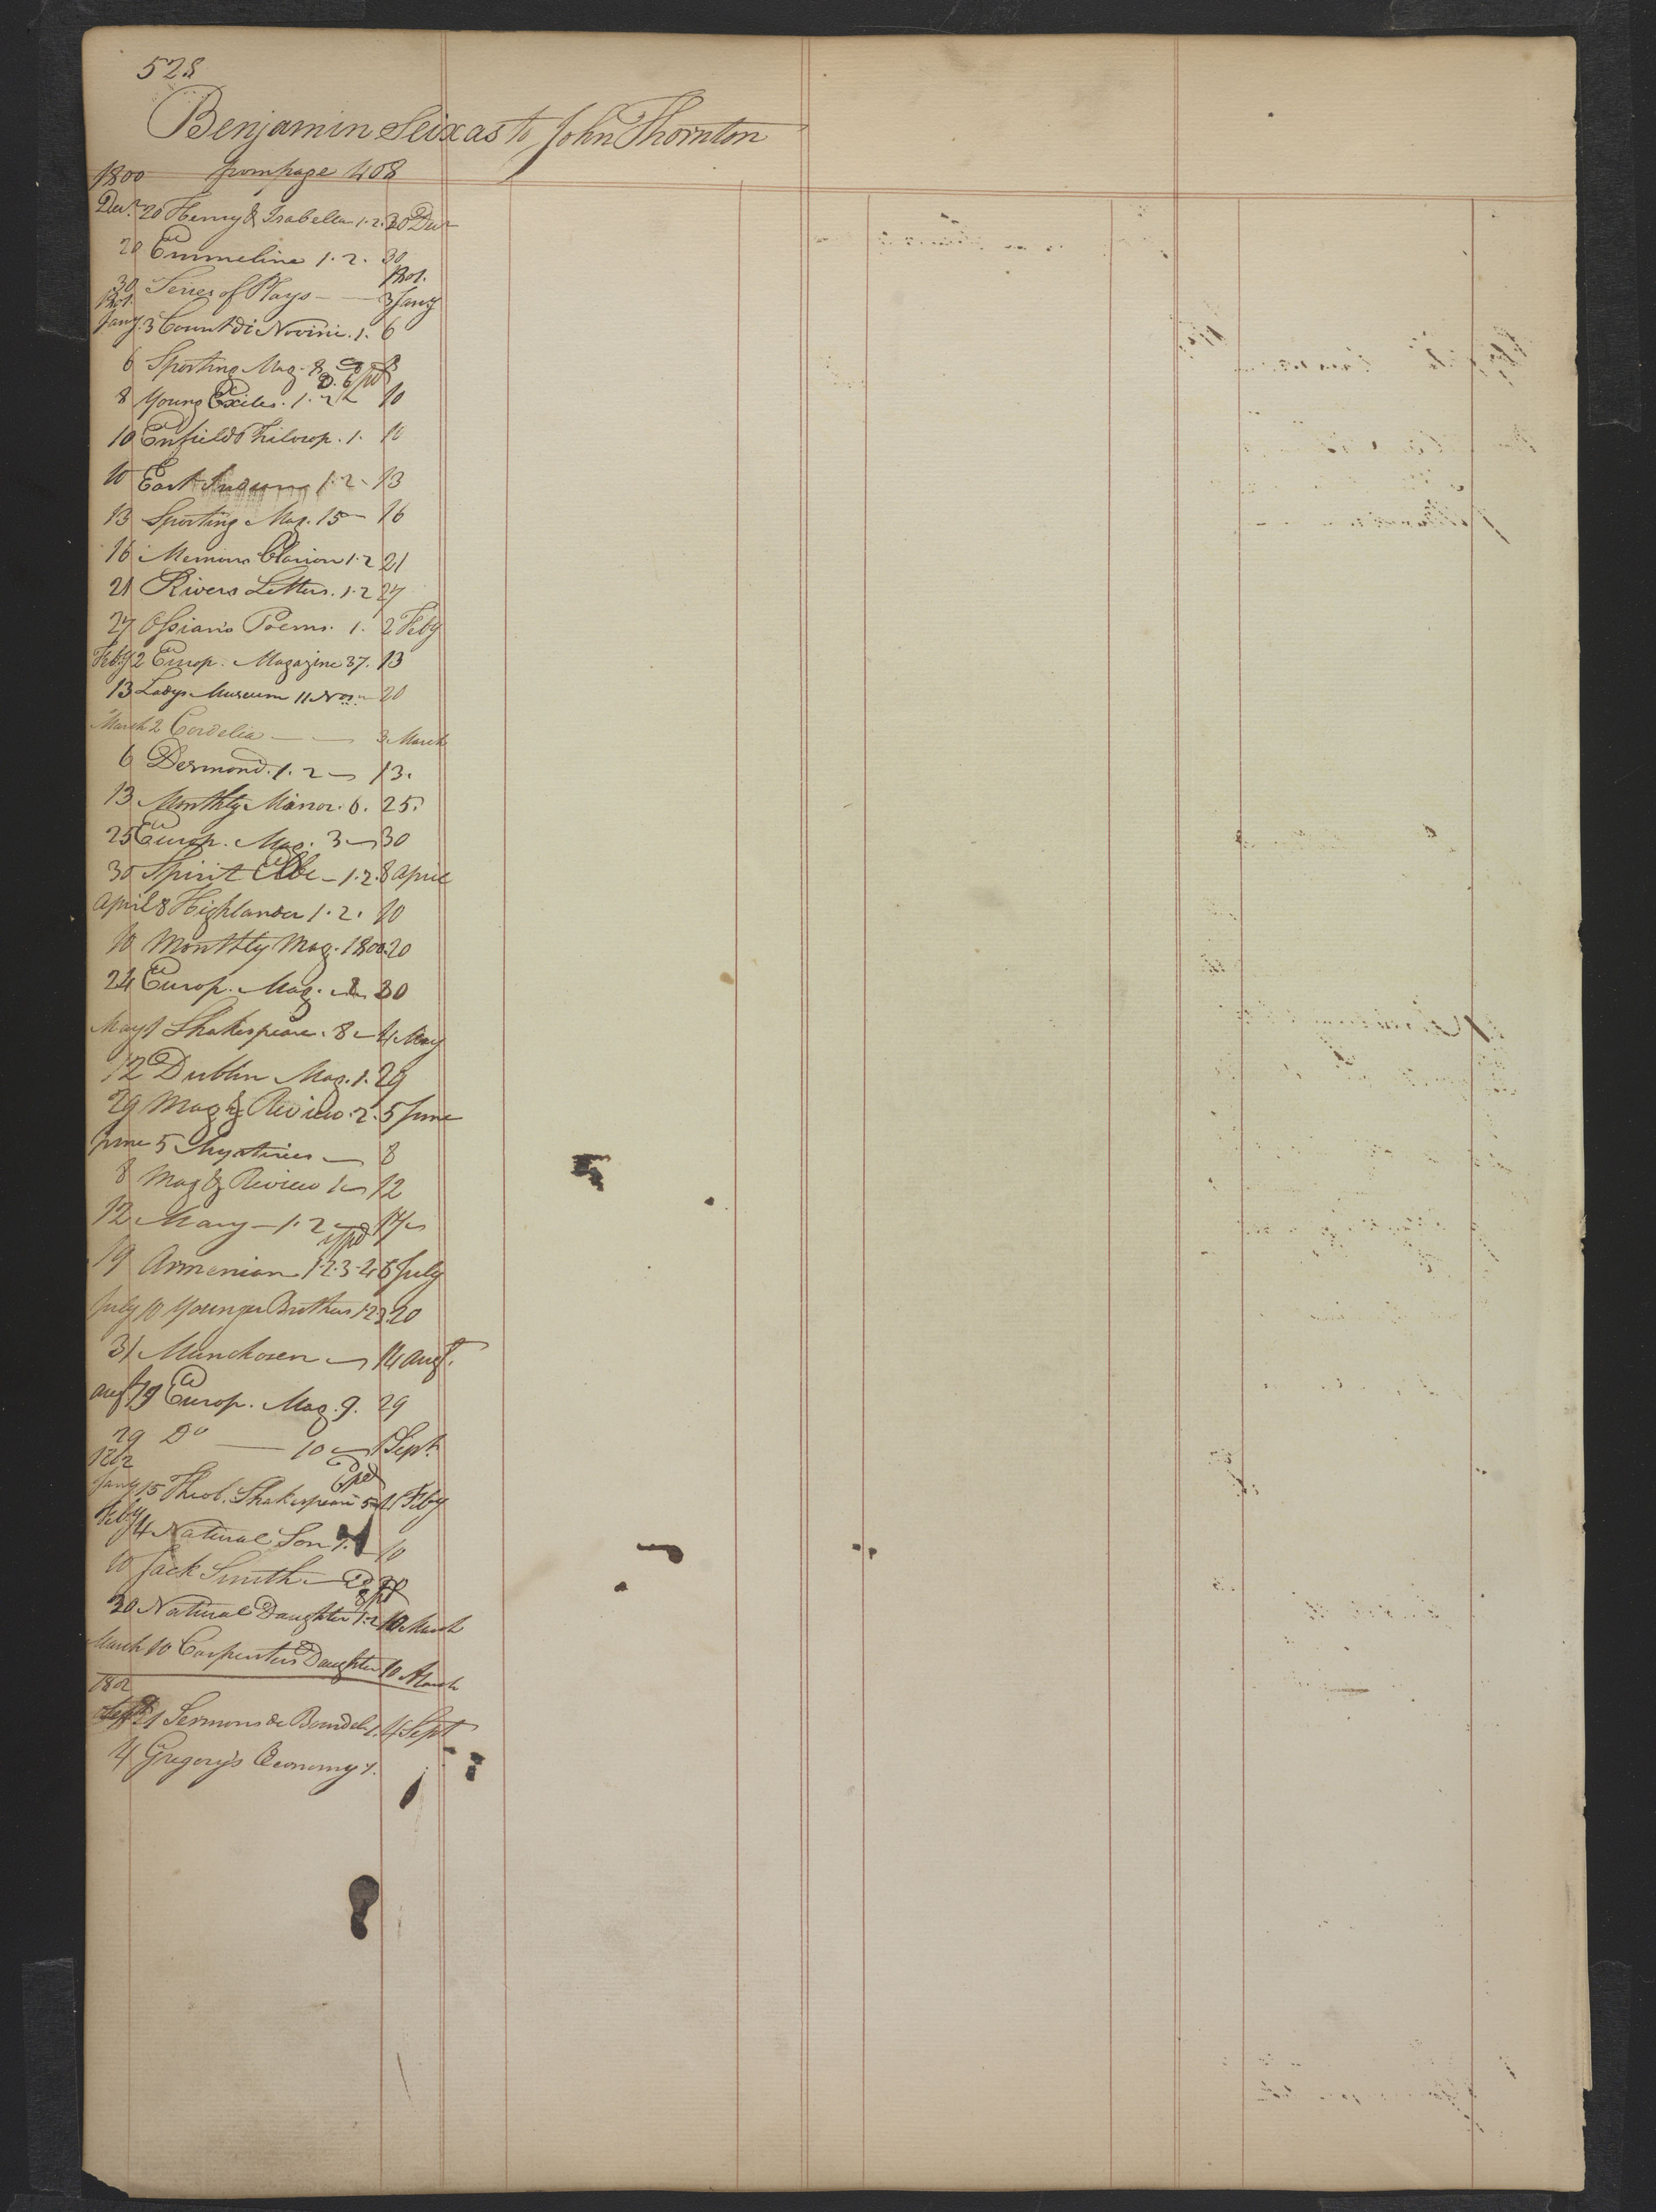 528
Benjamin Seixas to John Thornton
1800 from page 408
Decr. 20 Henry & Isabella 1.2. 30 Decr
20 Emmeline 1.2. 30
1801.
30 Series of Plays — 3 Jany
1801.
Jany. 3 Count di Novini. 1. 6
6 Sporting Mag. 8 8
D. 6/pd
8 Young Exiles. 1.2 10
10 Enfields Philosop. 1. 10
10 East Indian 1.2 - 13
13 Sporting Mag. 15 — 16
16 Memoirs Clarion 1.2 21
21 Rivers Letters. 1.2 27
27 Ossian's Poems. 1. 2 Feby
Feby 2 Europ. Magazine 37. 13
13 Ladys Museum 11 Nos — 20
March 2 Cordelia — — 3 March
6 Desmond. 1.2 — 13.
13 Monthly Mirror. 6. 25.
25 Europ. Mag. 3 — 30
30 Spirit Elbe — 1.2. 8 April
April 8 Highlander 1.2. 10
10 Monthly Mag. 1800. 20
24 Europ. Mag. 30
May 1 Shakespeare. 8 — 4 May
12 Dublin Mag. 1. 29
29 Mag & Review. 2. 5 June
June 5 Mysteries — 8
8 Mag & Review 1 — 12
12 Mary — 1.2 — 17
/pd
19 Armenian 1.2.3.4 6 July
July 10 Younger Brothers 1.2.3. 20
31 Munchosen — 14 Augt.
Augt. 19 Europ. Mag. 9. 29
29 Do — 10 — 1 Sept.
1802
6/pd
Jany 15 Theob. Shakespeare 5 — 4 Feby
Feby 4 Natural Son 1. — 10
10 Jack Smith — 20
8/pd
20 Natural Daughter 1.2 10 March
March 10 Carpenters Daughter 10 March
1802
Sept 1 Sermons de Bourdel. 1. 4 Sept
4 Gregory's Œconomy 1.